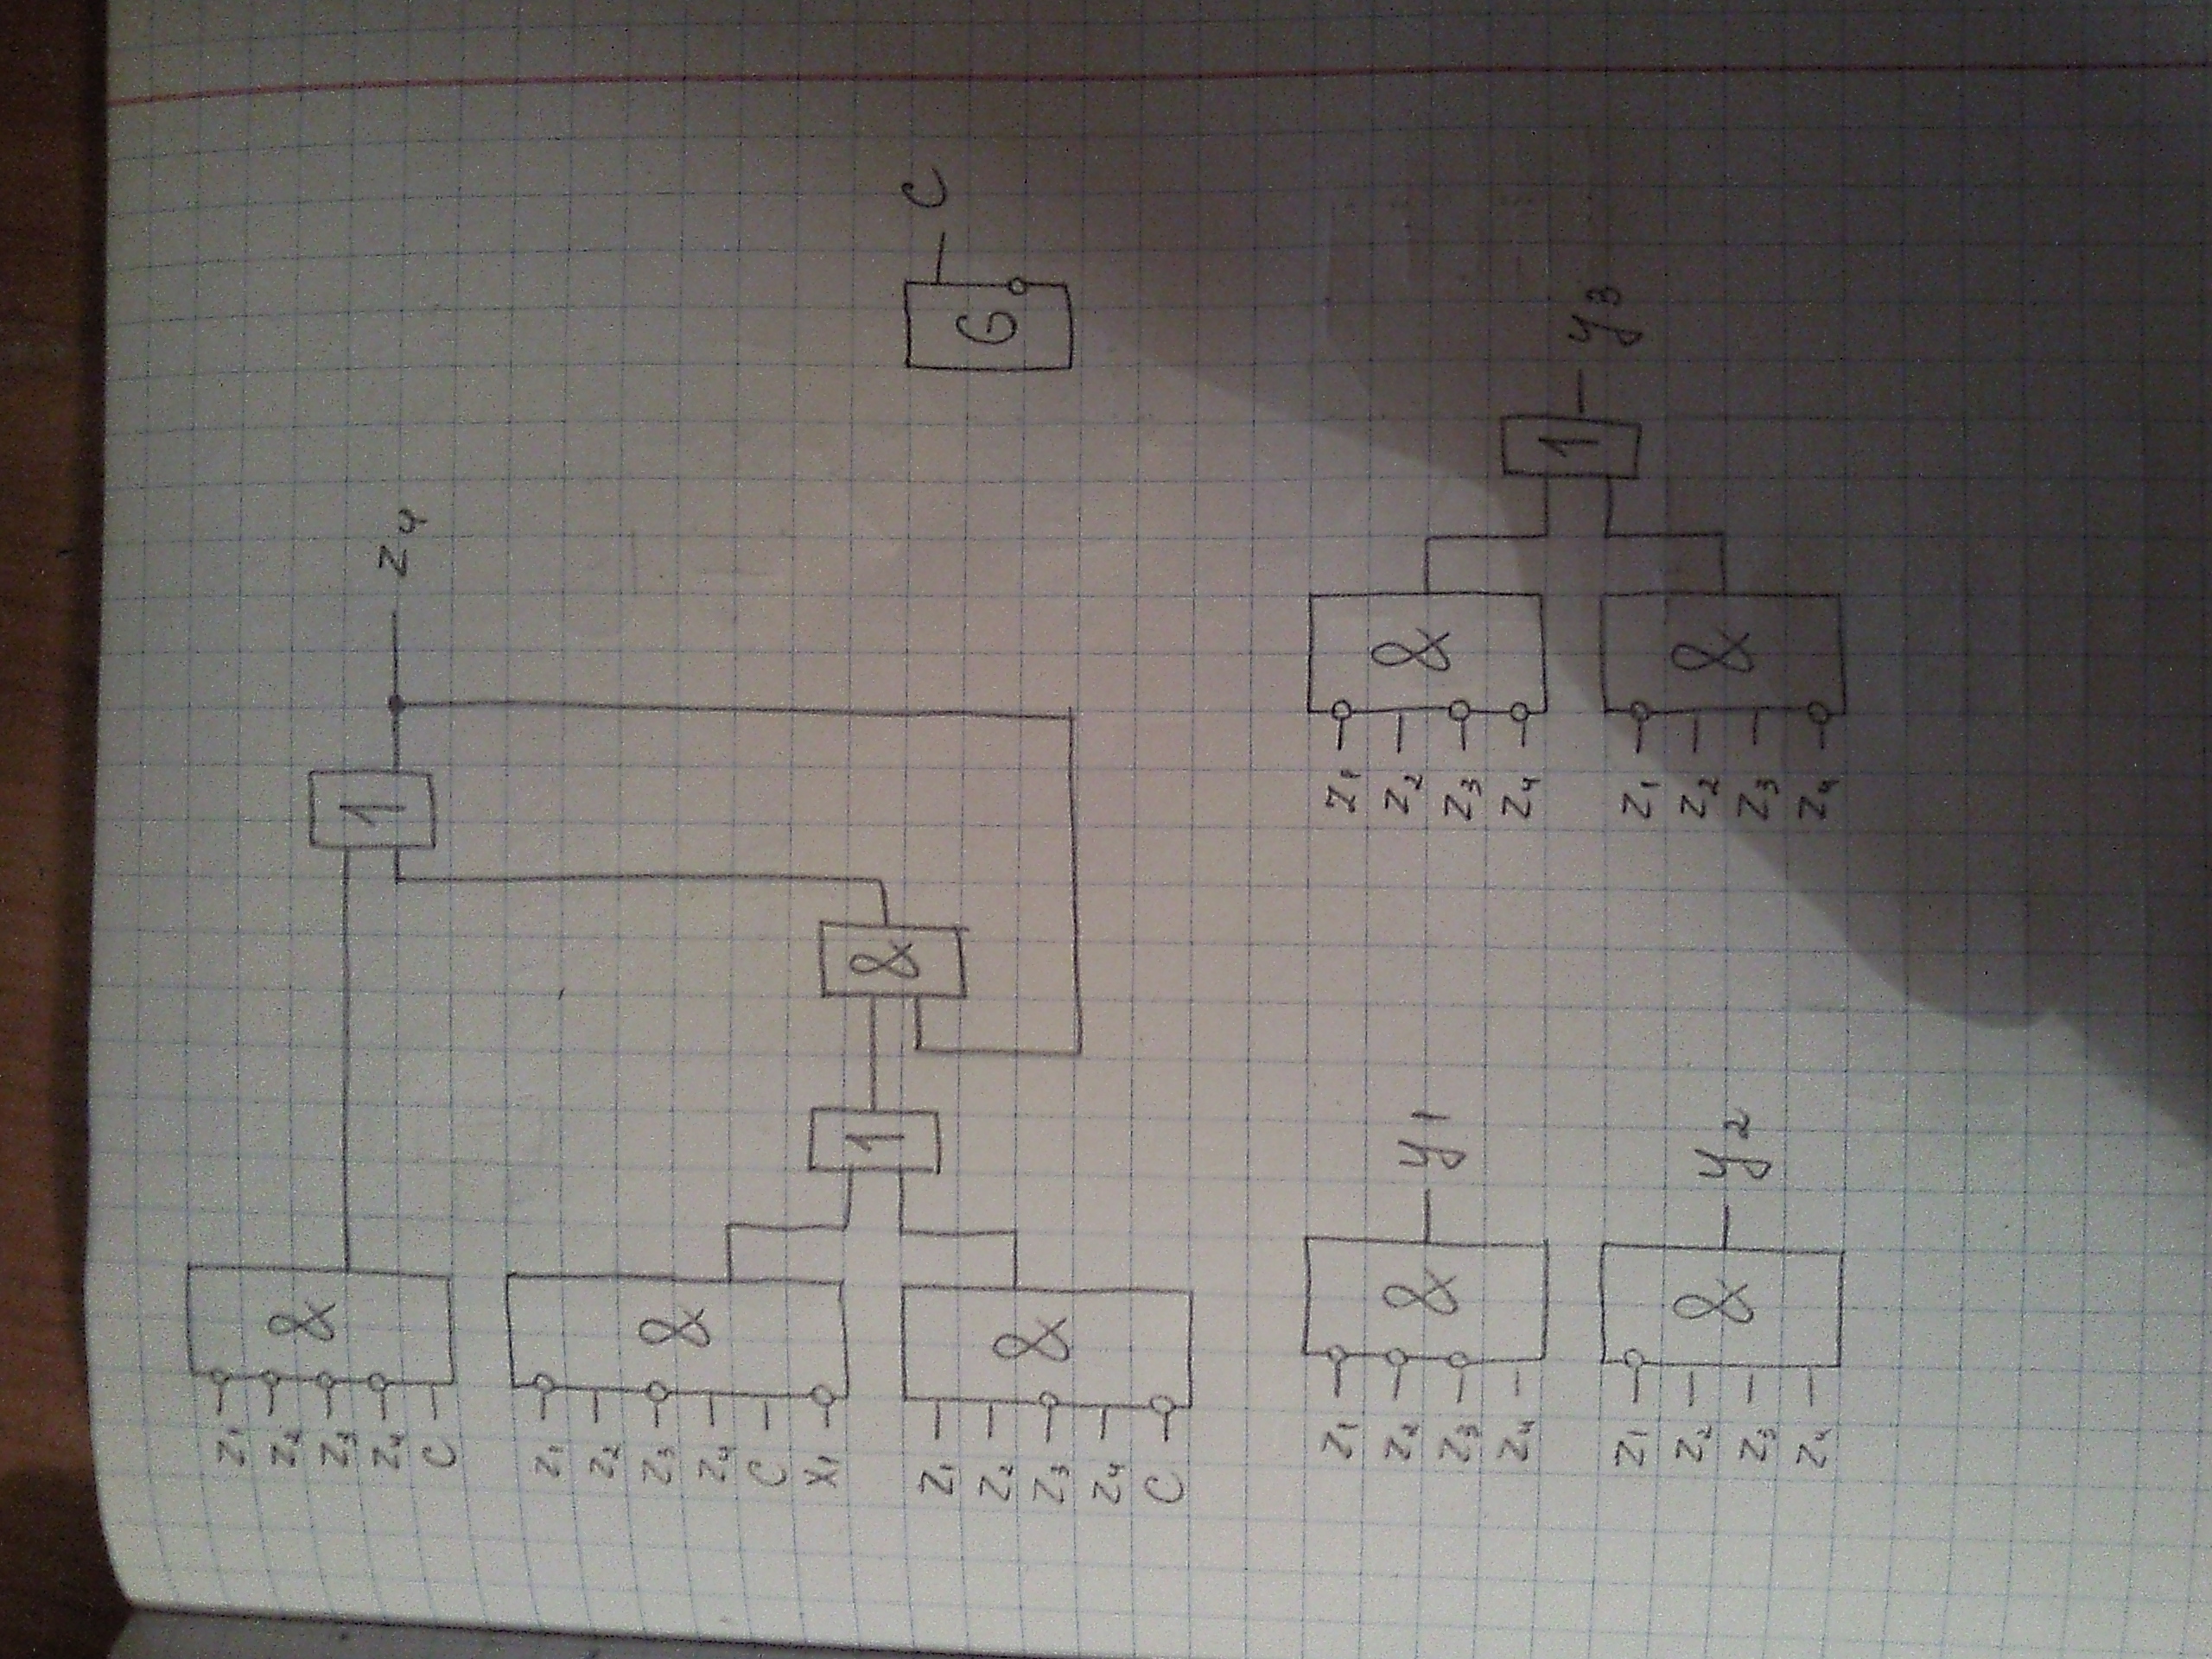 z₁
z₂
z₃
z₄
C
&
1
z₄
z₁
z₂
z₃
z₄
C
x₁
&
1
&
z₁
z₂
z₃
z₄
C
&
G
C
z₁
z₂
z₃
z₄
&
y₁
z₁
z₂
z₃
z₄
&
y₂
z₁
z₂
z₃
z₄
&
z₁
z₂
z₃
z₄
&
1
y₃